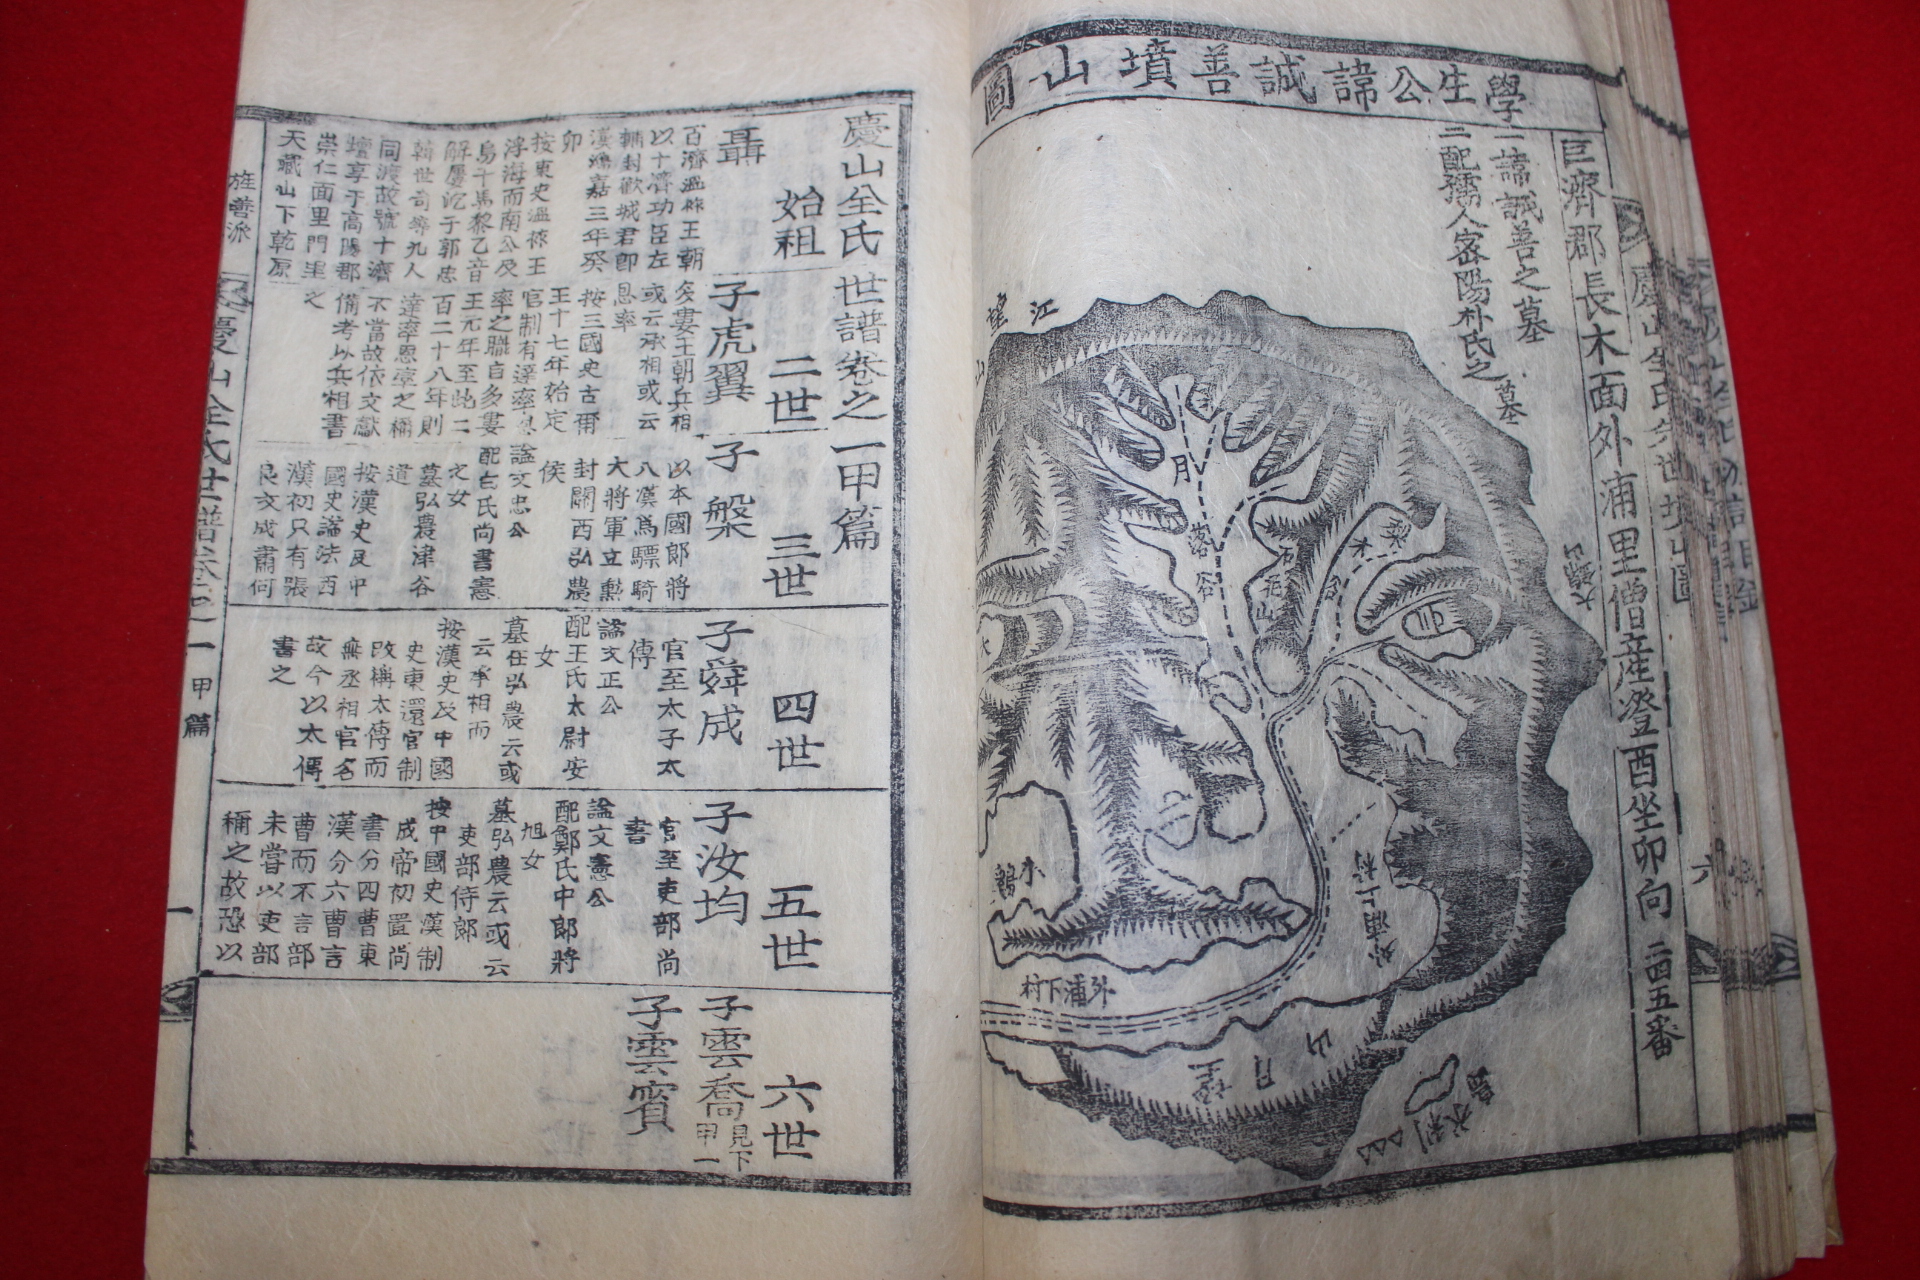 學生公諱誠善墳山圖
巨濟郡長木面外浦里僧産澄酉坐卯向 二四五番
學士諱誠善之墓
二配孺人密陽朴氏之墓
望
江
山
月
落
谷
石
花
山
梨
木
谷
大錦山
外浦上村
外浦下村
望
月
山
慶山全氏世譜卷之一甲篇
始祖
聶
百濟溫祚王朝
以十濟功臣左
輔封歡城君卽
漢鴻嘉三年癸
卯
按東史溫祚王
浮海而南公及
烏干馬黎乙音
解屢沱于郭忠
韓世奇等九人
同渡故號十濟
壇享于高陽郡
崇仁面里門里
天藏山下乾原
二世
子虎翼
多婁王朝兵相
或云承相或云
恩率
按三國史古爾
王十七年始定
官制有達率恩
率之職自多婁
王元年至此二
百二十八年則
達率恩率之稱
不當故依文獻
備考以兵相書
之
三世
子 槃
以本國郎將
入漢爲驃騎
大將軍立勳
封關西弘農
侯
諡文忠公
配白氏尚書憲
之女
墓弘農津谷
道
按漢史及中
國史諡法西
漢初只有張
良文成蕭何
四世
子舜成
官至太子太
傅
諡文正公
配王氏太尉安
女
墓在弘農云或
云承相而
按漢史及中國
史東還官制
改稱太傅而
無丞相官名
故今以太傅
書之
五世
子汝均
官至吏部尚
書
諡文憲公
配鄭氏中郎將
旭女
墓弘農云或云
吏部侍郎
按中國史漢制
成帝初置尚
書分四曹東
漢分六曹言
曹而不言部
未嘗以吏部
稱之故恐以
六世
子雲喬
見下
甲一
子雲賓
慶山全氏世譜卷之一 甲篇
一